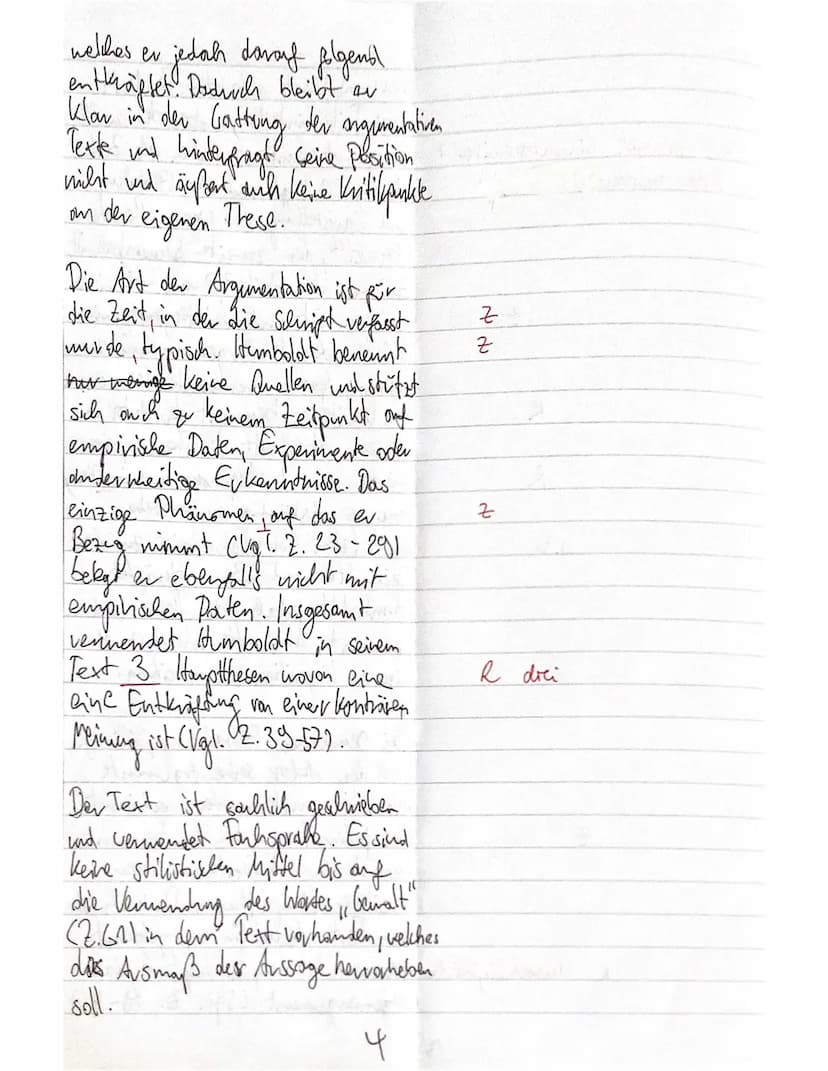 welches er jedoch darauf folgend
entkräftet. Dadurch bleibt er
klar in der Gattung der argumentativen
Texte und hinterfragt seine Position
nicht und äußert auch keine Kritikpunkte
an der eigenen These.
Die Art der Argumentation ist für
die Zeit, in der die Schrift verfasst Z
wurde, typisch. Humboldt benennt Z
nur wenige keine Quellen und stützt
sich auch zu keinem Zeitpunkt auf
empirische Daten, Experimente oder
anderweitige Erkenntnisse. Das
einzige Phänomen, auf das er Z
Bezug nimmt (Vgl. Z. 23-29)
belegt er ebenfalls nicht mit
empirischen Daten. Insgesamt
verwendet Humboldt in seinem
Text 3 Hauptthesen wovon eine R drei
eine Entkräftung von einer konträren
Meinung ist (Vgl. Z. 39-57).
Der Text ist sachlich geschrieben
und verwendet Fachsprache. Es sind
keine stilistischen Mittel bis auf
die Verwendung des Wortes „Gewalt"
(Z.61) in dem Text vorhanden, welches
das Ausmaß der Aussage hervorheben
soll.
4